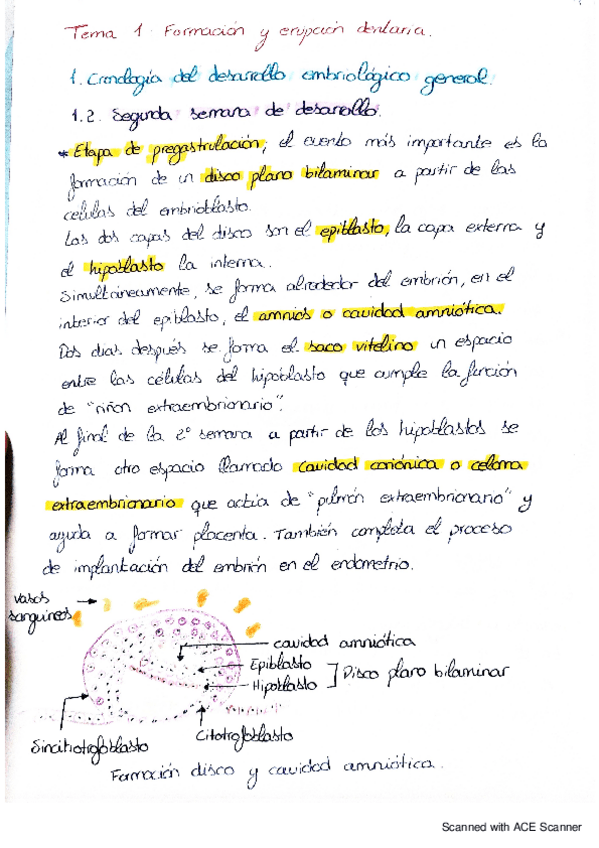 Tema 1. Formación y erupción dentaria.
1. Cronología del desarrollo embriológico general.
1.2. Segunda semana de desarrollo.
* Etapa de pregastrulación; el evento más importante es la
formación de un disco plano bilaminar a partir de las
células del embrioblasto.
Las dos capas del disco son el epiblasto, la capa externa y
el hipoblasto la interna.
Simultáneamente, se forma alrededor del embrión, en el
interior del epiblasto, el amnios o cavidad amniótica.
Dos días después se forma el saco vitelino un espacio
entre las células del hipoblasto que cumple la función
de "riñon extraembrionario".
Al final de la 2º semana a partir de los hipoblastos se
forma otro espacio llamado cavidad coriónica o celoma
extraembrionario que actúa de "pulmón extraembrionario" y
ayuda a formar placenta. También completa el proceso
de implantación del embrión en el endometrio.
vasos
sanguíneos
cavidad amniótica
Epiblasto
Hipoblasto
Disco plano bilaminar
Sincitiotrofoblasto
Citotrofoblasto
Formación disco y cavidad amniótica.
Scanned with ACE Scanner